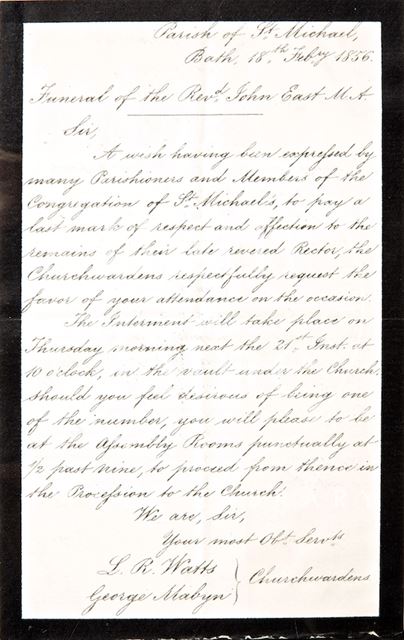 Parish of St. Michael,
Bath, 18th. Feby. 1856.
Funeral of the Revd. John East M.A.
Sir,
A wish having been expressed by
many Parishioners and Members of the
Congregation of St. Michael's, to pay a
last mark of respect and affection to the
remains of their late revered Rector, the
Churchwardens respectfully request the
favor of your attendance on the occasion.
The Interment will take place on
Thursday morning next the 21st. Inst. at
10 o'clock, in the vault under the Church,
should you feel desirous of being one
of the number, you will please to be
at the Assembly Rooms punctually at
1/2 past nine, to proceed from thence in
the Procession to the Church.
We are, Sir,
Your most Obt. Servts.
L. R. Watts
George Mabyn } Churchwardens